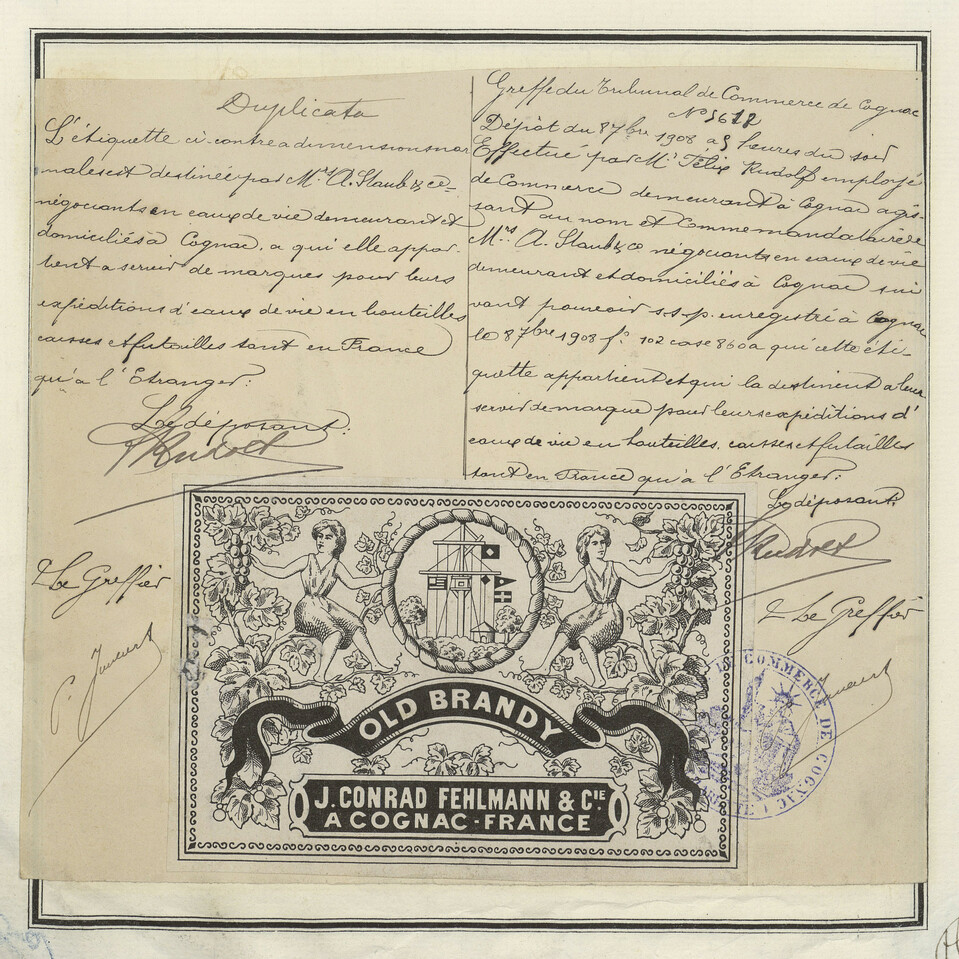 Duplicata
L'étiquette ci-contre a dimensions nor
males est destinée par Mrs A. Staub & ce
négociants en eaux de vie demeurant et
domiciliés à Cognac, a qui elle appar-
tient a servir de marques pour leurs
expéditions d'eaux de vie en bouteilles
caisses et futailles tant en France
qu'à l'Etranger:
Le déposant:
Le Greffier
Greffe du Tribunal de Commerce de Cognac
Dépôt du 8 7bre 1908 a 3 heures du soir
Effectué par Mr Félix Rudolf employé
de Commerce demeurant à Cognac agis-
sant au nom et Comme mandataire de
Mrs A. Staub & ce négociants en eaux de vie
demeurant et domiciliés à Cognac sui
vant pouvoir s.s.p. enregistré à Cognac
le 8 7bre 1908 fo 102 case 860 a qui cette éti-
quette appartient et qui la destinent a leur
servir de marque pour leurs expéditions d'
eaux de vie en bouteilles, caisses et futailles
tant en France qu'à l'Etranger:
Le déposant:
Le Greffier
OLD BRANDY
J. CONRAD FEHLMANN & CIE
A COGNAC - FRANCE
DE COMMERCE DE COGNAC